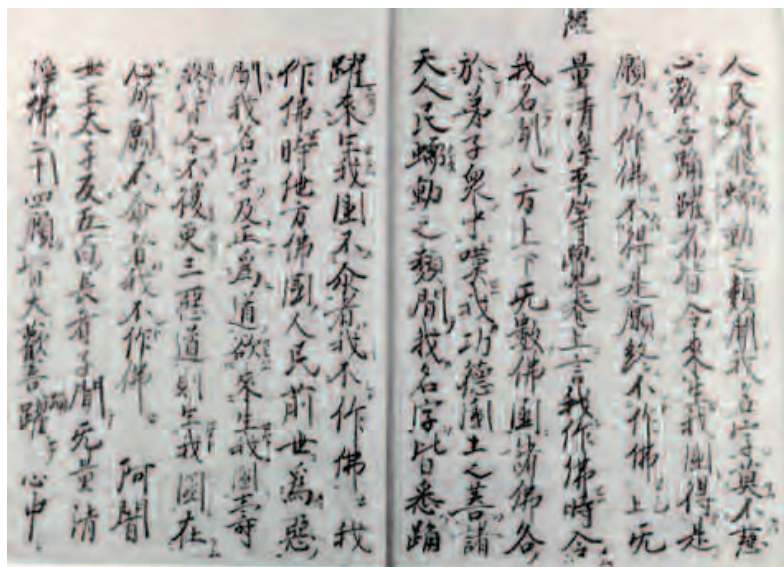 人民蜎飛蠕動之類聞我名字莫不慈
心歡喜踊躍者皆令來生我國得是
願乃作佛不得是願終不作佛 上已 无
經
量清淨平等覺卷上言我作佛時令
我名聞八方上下无數佛國諸佛各
於弟子衆中嘆我功德國土之善諸
天人民蠕動之類聞我名字皆悉踊
躍來生我國不尒者我不作佛 我
作佛時他方佛國人民前世爲惡
聞我名字及正爲道欲來生我國壽
終皆令不復更三惡道則生我國在
心所願不尒者我不作佛 阿闍
世王太子及五百長者子聞无量清
淨佛二十四願皆大歡喜踊躍心中